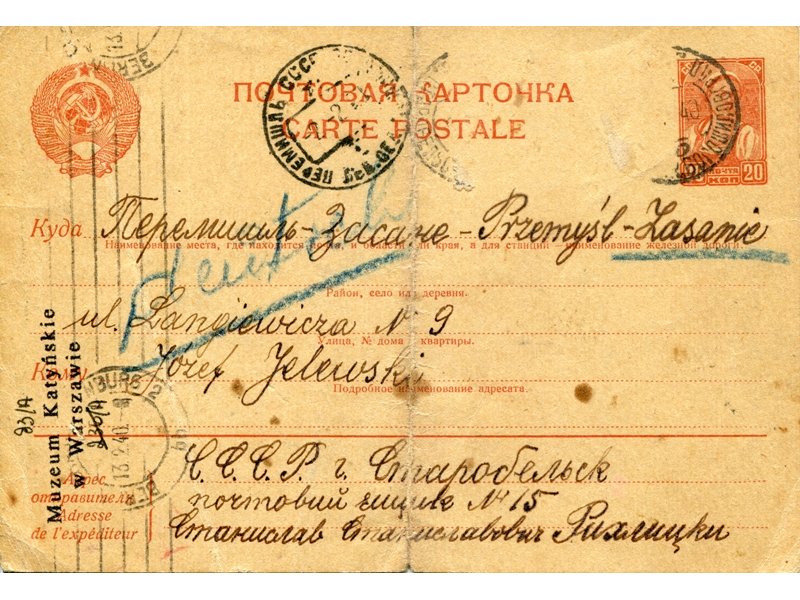 ПОЧТОВАЯ КАРТОЧКА
CARTE POSTALE
ПОЧТА
20 КОП
ПЕРЕМИШЛЬ СССР
Куда Перемишль-Засане - Przemyśl-Zasanie
Наименование места, где находится почта, и области или края, а для станции – наименование железной дороги.
Район, село или деревня.
ul. Langiewicza N 9
Улица, № дома и квартиры.
Кому Józef Jelewski
Подробное наименование адресата.
Muzeum Katyńskie
w Warszawie
93/A
13.2.40.
Адрес отправителя
Adresse de l'expéditeur
С.С.С.Р г. Старобельск
почтовий ящик № 15
Станислав Станиславович Рихлицки